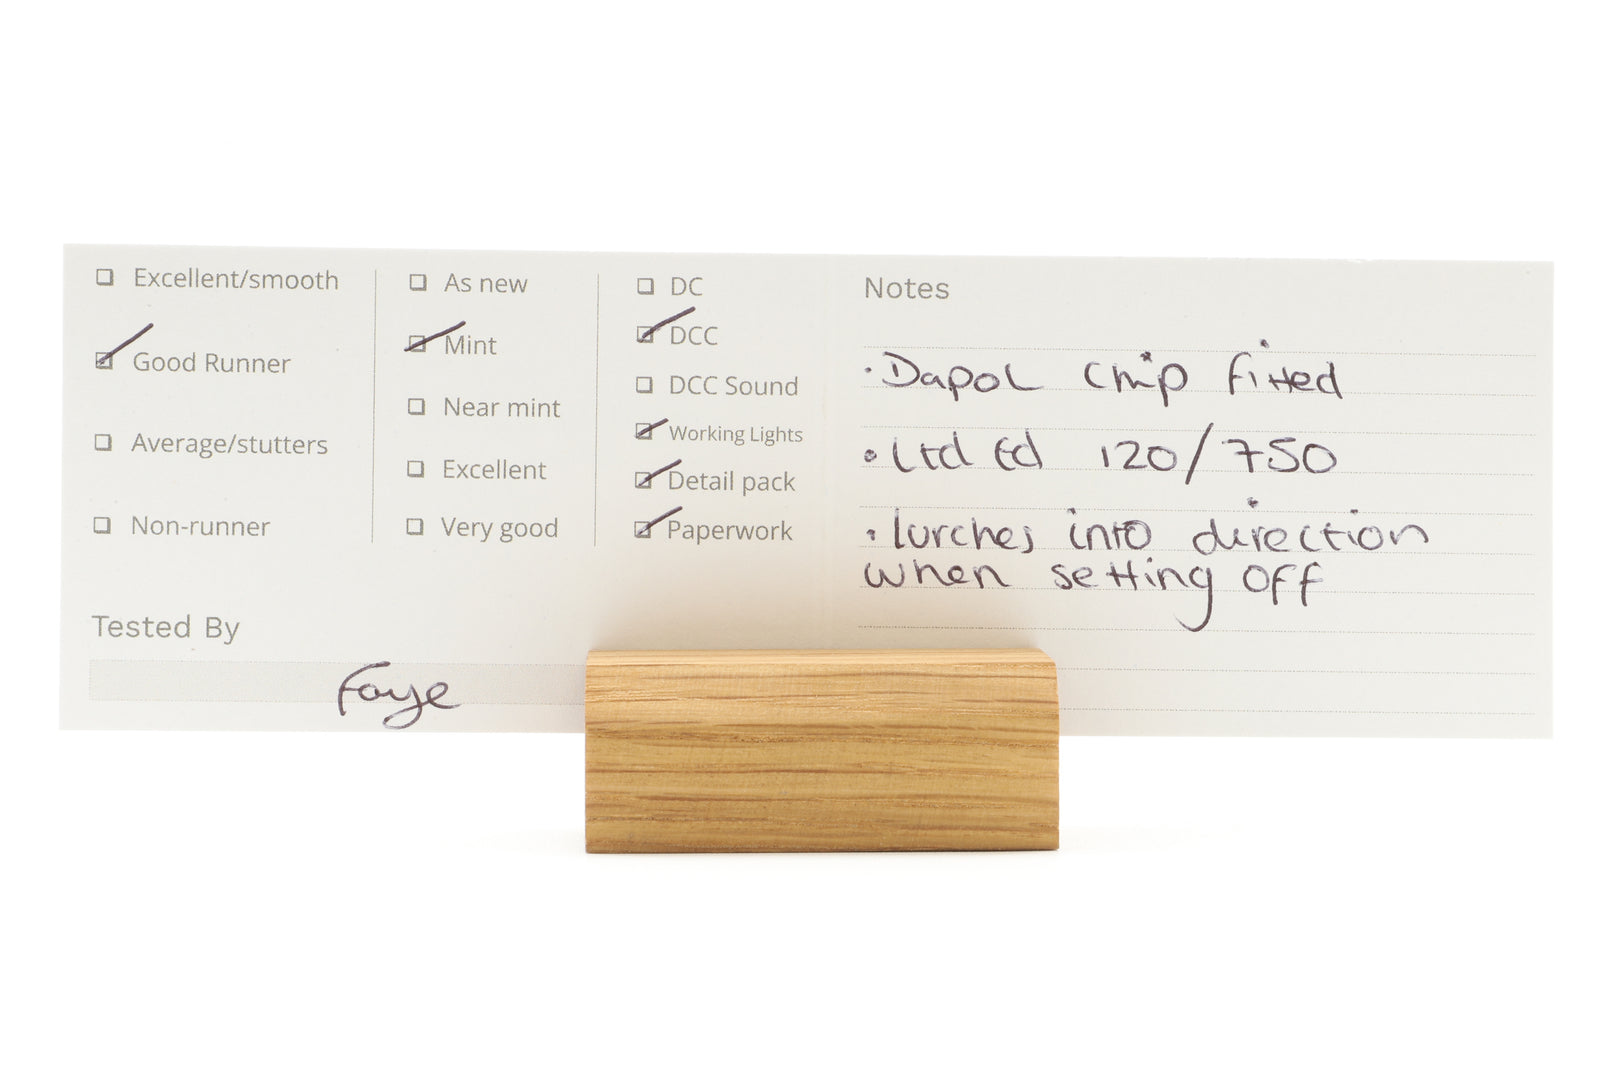 Excellent/smooth
Good Runner
Average/stutters
Non-runner
As new
Mint
Near mint
Excellent
Very good
DC
DCC
DCC Sound
Working Lights
Detail pack
Paperwork
Tested By
Faye
Notes
• Dapol Chip fitted
• Ltd Ed 120/750
• lurches into direction
when setting off